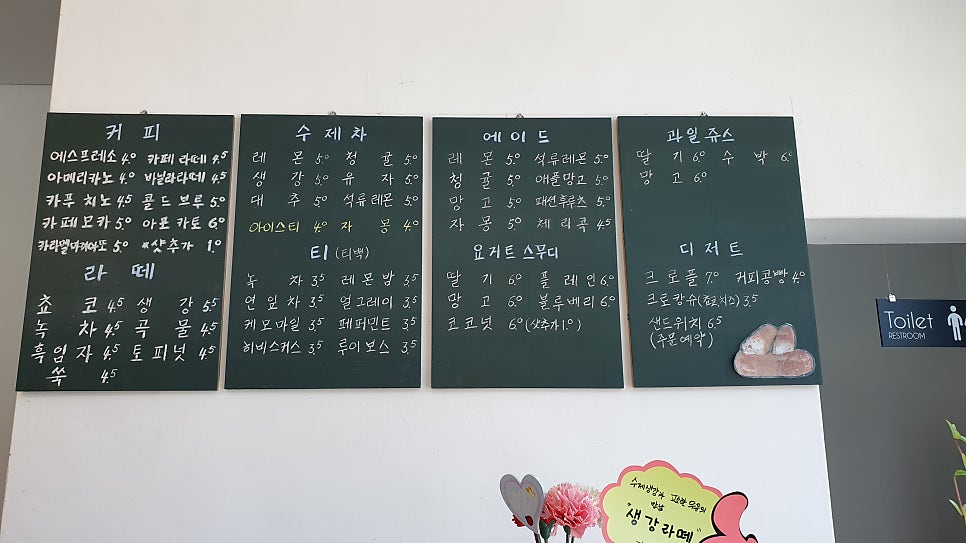 커피
에스프레소 4.0 카페라떼 4.5
아메리카노 4.0 바닐라라떼 4.5
카푸치노 4.5 콜드브루 5.0
카페모카 5.0 아포카토 6.0
카라멜마끼아또 5.0 *샷추가 1.0
라떼
쵸코 4.5 생강 5.5
녹차 4.5 곡물 4.5
흑임자 4.5 토피넛 4.5
쑥 4.5
수제차
레몬 5.0 청귤 5.0
생강 5.0 유자 5.0
대추 5.0 석류레몬 5.0
아이스티 4.0 자몽 4.0
티 (티백)
녹차 3.5 레몬밤 3.5
연잎차 3.5 얼그레이 3.5
케모마일 3.5 페퍼민트 3.5
히비스커스 3.5 루이보스 3.5
에이드
레몬 5.0 석류레몬 5.0
청귤 5.0 애플망고 5.0
망고 5.0 패션후루츠 5.0
자몽 5.0 체리콕 4.5
요거트스무디
딸기 6.0 플레인 6.0
망고 6.0 블루베리 6.0
코코넛 6.0 (샷추가 1.0)
과일쥬스
딸기 6.0 수박 6.0
망고 6.0
디저트
크로플 7.0 커피콩빵 4.0
크로캉슈(쵸코,치즈) 3.5
샌드위치 6.5
(주문예약)
Toilet
RESTROOM
수제생강과 고소한 우유의
만남
"생강라떼"